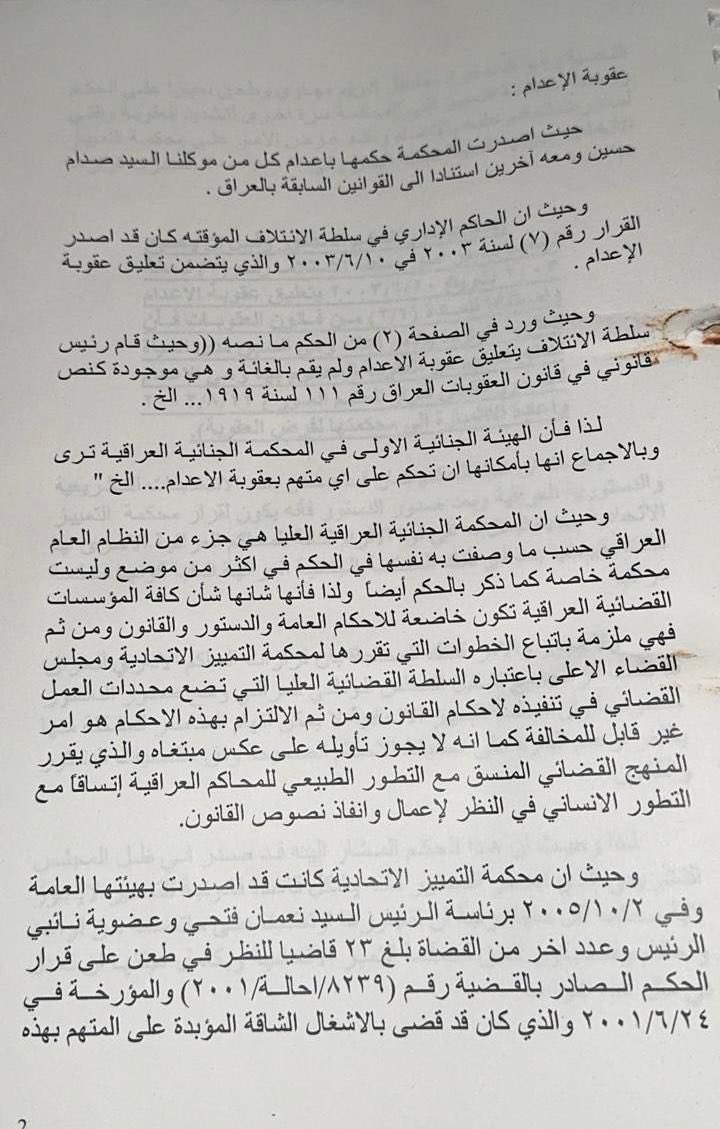 عقوبة الإعدام :
حيث اصدرت المحكمة حكمها باعدام كل من موكلنا السيد صدام
حسين ومعه آخرين استنادا الى القوانين السابقة بالعراق .
وحيث ان الحاكم الإداري في سلطة الائتلاف المؤقته كان قد اصدر
القرار رقم (٧) لسنة ٢٠٠٣ في ٢٠٠٣/٦/١٠ والذي يتضمن تعليق عقوبة
الإعدام .
وحيث ورد في الصفحة (٢) من الحكم ما نصه ((وحيث قام رئيس
سلطة الائتلاف بتعليق عقوبة الاعدام ولم يقم بالغائة و هي موجودة كنص
قانوني في قانون العقوبات العراق رقم ١١١ لسنة ١٩١٩... الخ .
لذا فأن الهيئة الجنائية الاولى في المحكمة الجنائية العراقية ترى
وبالاجماع انها بأمكانها ان تحكم على اي متهم بعقوبة الاعدام.... الخ "
وحيث ان المحكمة الجنائية العراقية العليا هي جزء من النظام العام
العراقي حسب ما وصفت به نفسها في الحكم في اكثر من موضع وليست
محكمة خاصة كما ذكر بالحكم أيضاً ولذا فأنها شانها شأن كافة المؤسسات
القضائية العراقية تكون خاضعة للاحكام العامة والدستور والقانون ومن ثم
فهي ملزمة باتباع الخطوات التي تقررها لمحكمة التمييز الاتحادية ومجلس
القضاء الاعلى باعتباره السلطة القضائية العليا التي تضع محددات العمل
القضائي في تنفيذه لاحكام القانون ومن ثم الالتزام بهذه الاحكام هو امر
غير قابل للمخالفة كما انه لا يجوز تأويله على عكس مبتغاه والذي يقرر
المنهج القضائي المنسق مع التطور الطبيعي للمحاكم العراقية إتساقاً مع
التطور الانساني في النظر لإعمال وانفاذ نصوص القانون.
وحيث ان محكمة التمييز الاتحادية كانت قد اصدرت بهيئتها العامة
وفي ٢٠٠٥/١٠/٢ برئاسة الرئيس السيد نعمان فتحي وعضوية نائبي
الرئيس وعدد اخر من القضاة بلغ ٢٣ قاضيا للنظر في طعن على قرار
الحكم الصادر بالقضية رقم (٨٢٣٩/احالة/٢٠٠١) والمؤرخة في
٢٠٠١/٦/٢٤ والذي كان قد قضى بالاشغال الشاقة المؤبدة على المتهم بهذه
2